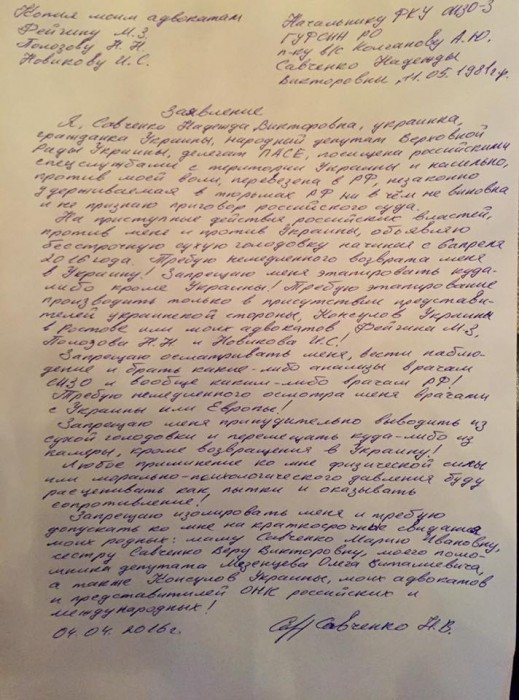 Копия моим адвокатам
Фейгину М.З.
Полозову Н.Н.
Новикову И.С.
Начальнику ФКУ СИЗО-3
ГУФСИН РО
п-ку в/с Колганову А.Ю.
Савченко Надежды
Викторовны, 11.05.1981г.р.
Заявление
Я, Савченко Надежда Викторовна, украинка,
гражданка Украины, народный депутат Верховной
Рады Украины, делегат ПАСЕ, похищена российскими
спецслужбами с территории Украины и насильно,
против моей воли, перевезена в РФ, незаконно
удерживаемая в тюрьмах РФ ни в чём не виновна
и не признаю приговор российского суда.
На преступные действия российских властей,
против меня и против Украины, объявляю
бессрочную сухую голодовку начиная с 6 апреля
2016 года. Требую немедленного возврата меня
в Украину! Запрещаю меня этапировать куда-
либо кроме Украины! Требую этапирование
производить только в присутствии представи-
телей украинской стороны, Консулов Украины
в Ростове или моих адвокатов Фейгина М.З,
Полозова Н.Н и Новикова И.С!
Запрещаю осматривать меня, вести наблю-
дение и брать какие-либо анализы врачам
СИЗО и вообще каким-либо врачам РФ!
Требую немедленного осмотра меня врачами
с Украины или Европы!
Запрещаю меня принудительно выводить из
сухой голодовки и перемещать куда-либо из
камеры, кроме возвращения в Украину!
Любое применение ко мне физической силы
или морально-психологического давления буду
расценивать как пытки и оказывать
сопротивление!
Запрещаю изолировать меня и требую
допускать ко мне на краткосрочные свидания
моих родных: маму Савченко Марию Ивановну,
сестру Савченко Веру Викторовну, моего помо-
щника депутата Мезенцева Олега Виталиевича,
а также Консулов Украины, моих адвокатов
и представителей ОНК российских и
международных!
04.04.2016г. Савченко Н.В.